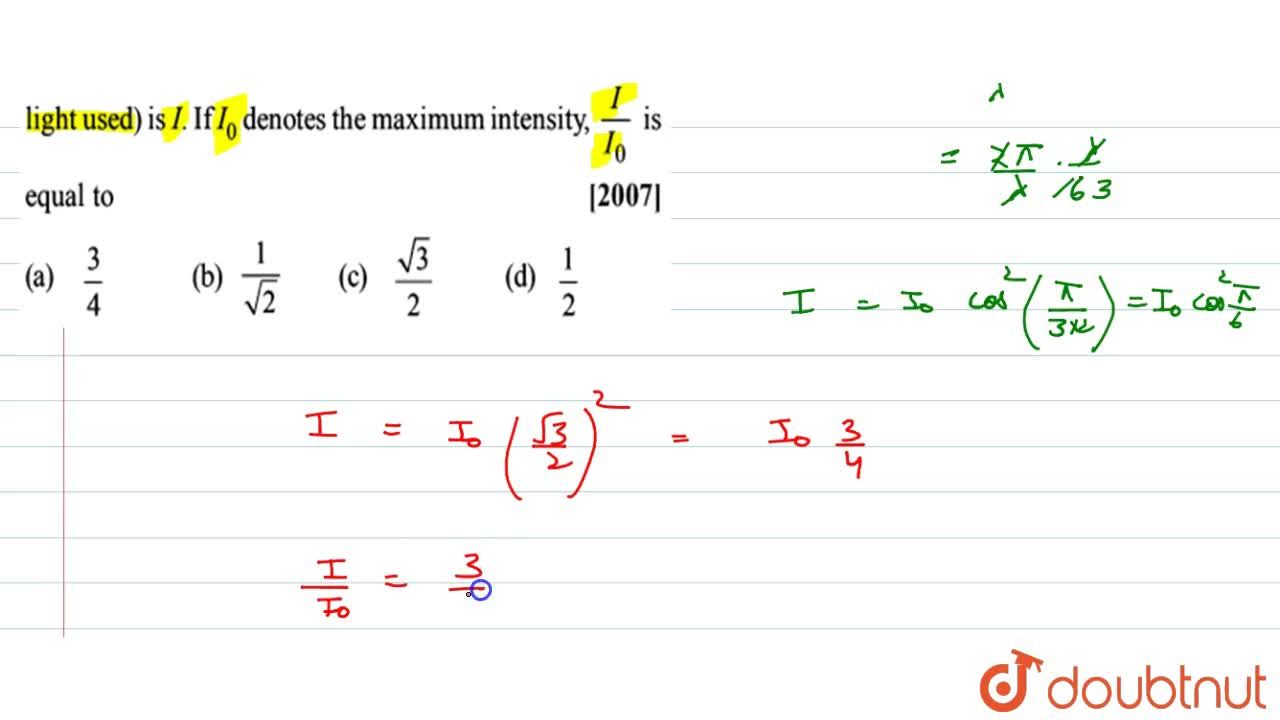 light used) is I. If I₀ denotes the maximum intensity, I/I₀ is
equal to [2007]
(a) 3/4 (b) 1/√2 (c) √3/2 (d) 1/2
λ
= 2π/λ · λ/6 3
I = I₀ cos² (π/3×2) = I₀ cos² π/6
I = I₀ (√3/2)² = I₀ 3/4
I/I₀ = 3
doubtnut